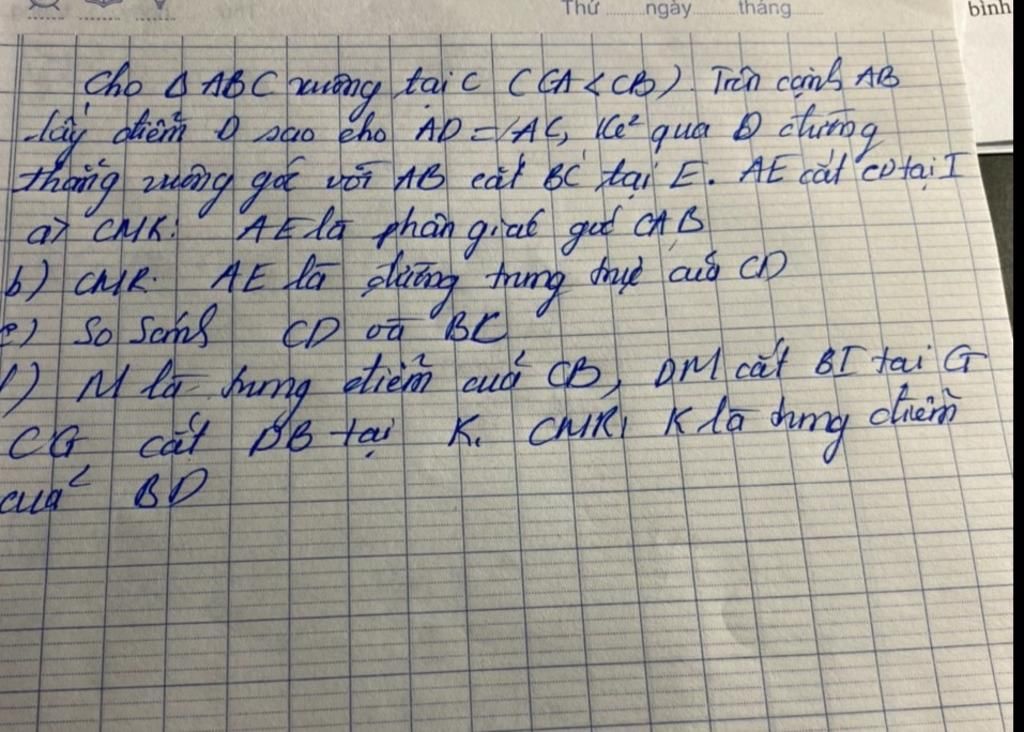 Thứ ........ngày........tháng........
bình
Cho Δ ABC vuông tại C (CA < CB). Trên cạnh AB
lấy điểm D sao cho AD = AC, Kẻ qua D đường
thẳng vuông góc với AB cắt BC tại E. AE cắt CD tại I
a) CMR: AE là phân giác góc CAB
b) CMR. AE là đường trung trực của CD
c) So Sánh CD và BC
) M là trung điểm của CB, DM cắt BI tại G
CG cắt DB tại K. CMR, K là trung điểm
của BD